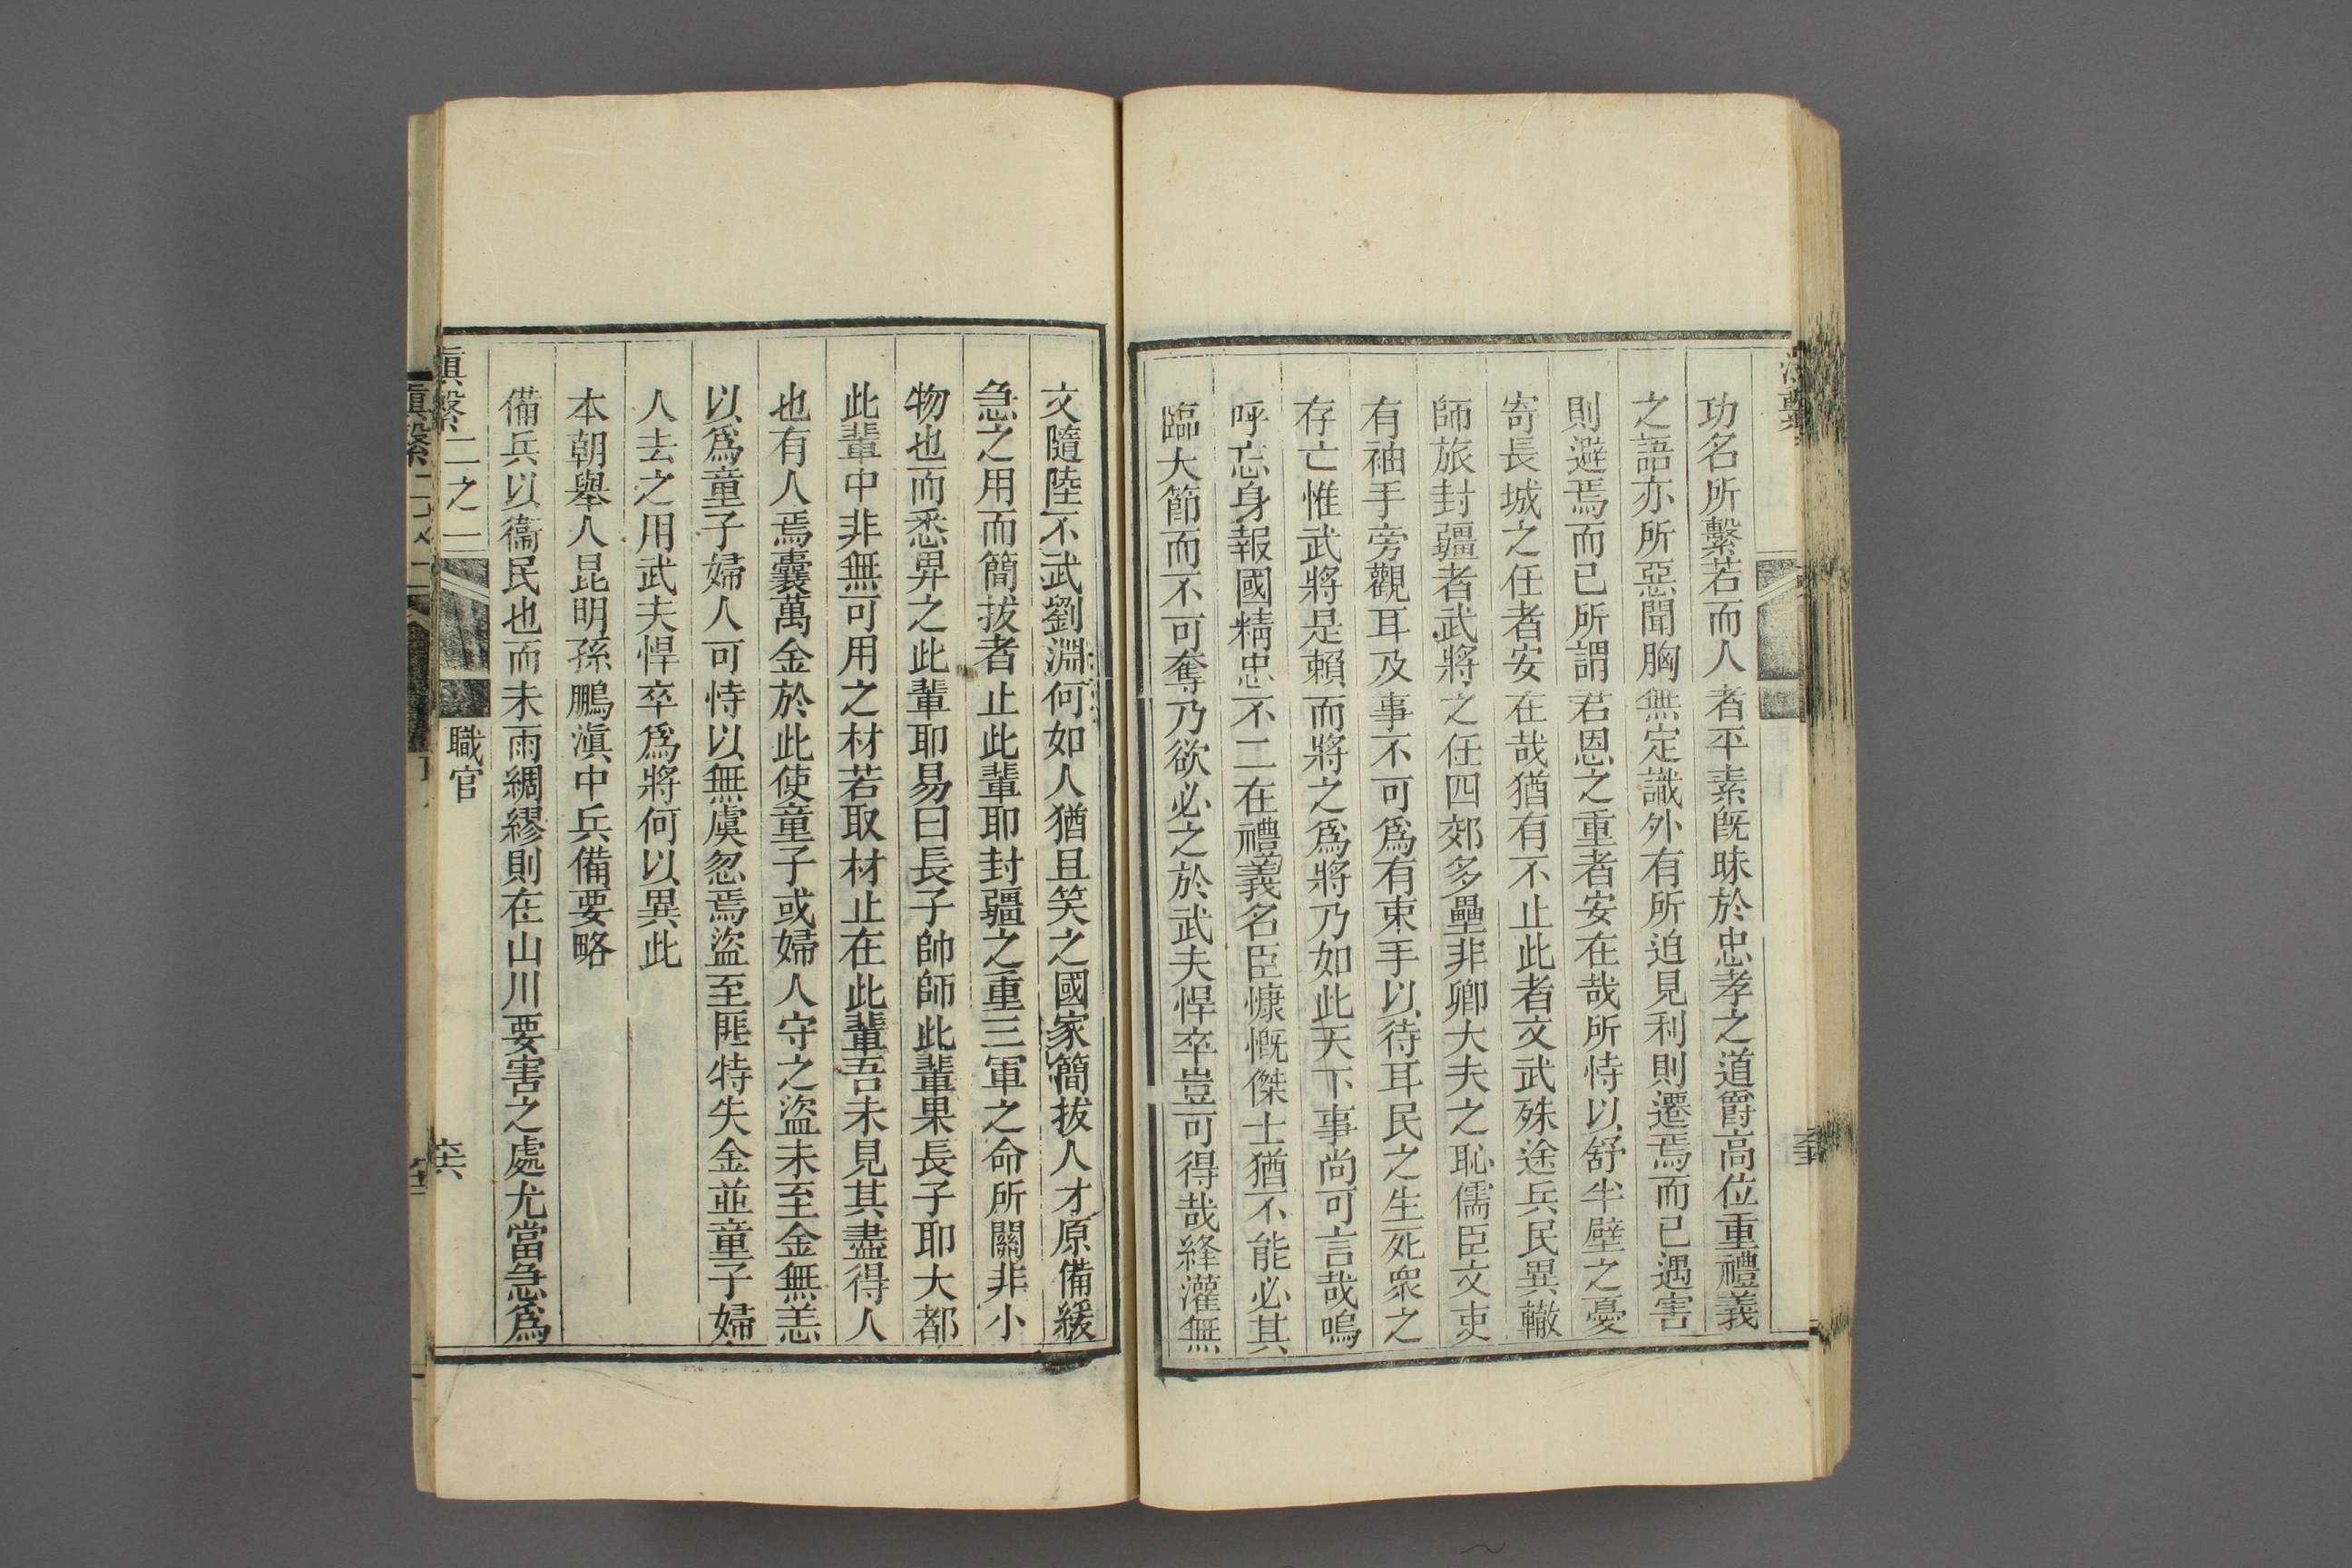 功名所繫若而人者平素旣昧於忠孝之道爵高位重禮義
之語亦所惡聞胸無定識外有所迫見利則遷焉而已遇害
則避焉而已所謂君恩之重者安在哉所恃以舒半壁之憂
寄長城之任者安在哉猶有不止此者文武殊途兵民異轍
師旅封疆者武將之任四郊多壘非卿大夫之恥儒臣文吏
有袖手旁觀耳及事不可爲有束手以待耳民之生死衆之
存亡惟武將是賴而將之爲將乃如此天下事尚可言哉嗚
呼忘身報國精忠不二在禮義名臣慷慨傑士猶不能必其
臨大節而不可奪乃欲必之於武夫悍卒豈可得哉絳灌無
文隨陸不武劉淵何如人猶且笑之國家簡拔人才原備緩
急之用而簡拔者止此輩耶封疆之重三軍之命所關非小
物也而悉畀之此輩耶易曰長子帥師此輩果長子耶大都
此輩中非無可用之材若取材止在此輩吾未見其盡得人
也有人焉囊萬金於此使童子或婦人守之盜未至金無恙
以爲童子婦人可恃以無虞忽焉盜至匪特失金並童子婦
人去之用武夫悍卒爲將何以異此
本朝舉人昆明孫鵬滇中兵備要略
備兵以衞民也而未雨綢繆則在山川要害之處尤當急爲
滇繫二之二 職官 六六